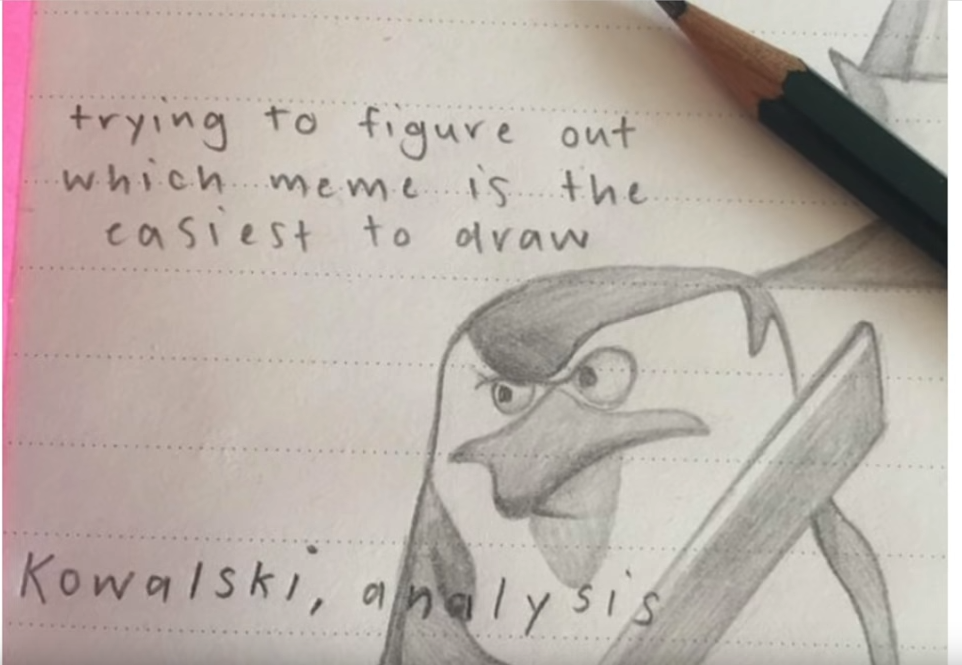 trying to figure out
which meme is the
easiest to draw
Kowalski, analysis